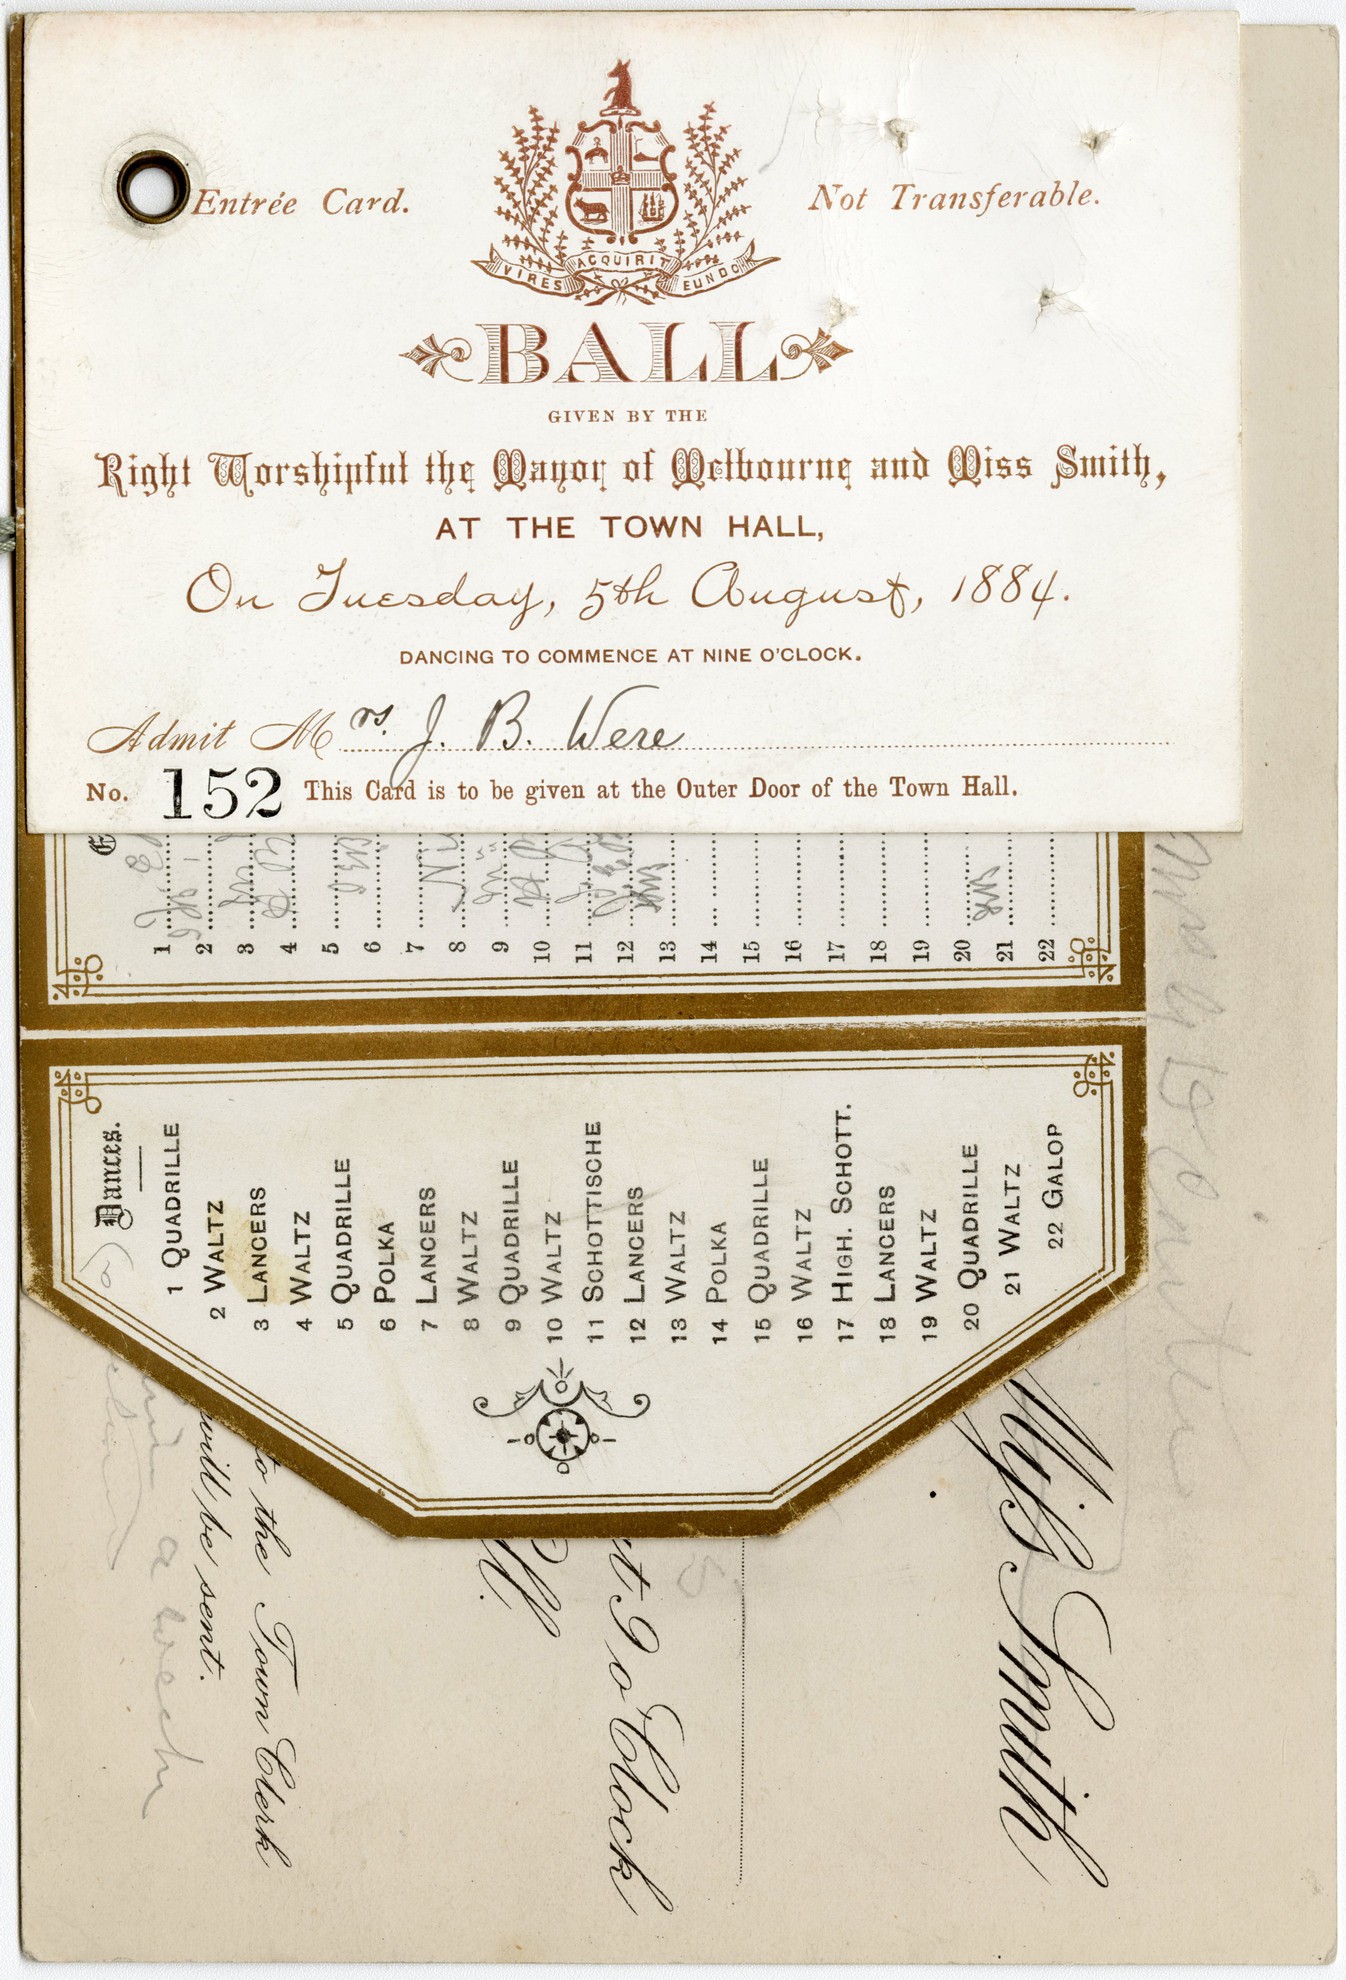 Entrée Card.
Not Transferable.
VIRES ACQUIRIT EUNDO
BALL
GIVEN BY THE
Right Worshipful the Mayor of Melbourne and Miss Smith,
AT THE TOWN HALL,
On Tuesday, 5th August, 1884.
DANCING TO COMMENCE AT NINE O'CLOCK.
Admit Mrs. J. B. Were
No. 152 This Card is to be given at the Outer Door of the Town Hall.
1
2
3
4
5
6
7
8
9
10
11
12
13
14
15
16
17
18
19
20
21
22
Dances.
1 QUADRILLE
2 WALTZ
3 LANCERS
4 WALTZ
5 QUADRILLE
6 POLKA
7 LANCERS
8 WALTZ
9 QUADRILLE
10 WALTZ
11 SCHOTTISCHE
12 LANCERS
13 WALTZ
14 POLKA
15 QUADRILLE
16 WALTZ
17 HIGH. SCHOTT.
18 LANCERS
19 WALTZ
20 QUADRILLE
21 WALTZ
22 GALOP
Miss Smith
t 9 o'Clock
to the Town Clerk
will be sent.
a